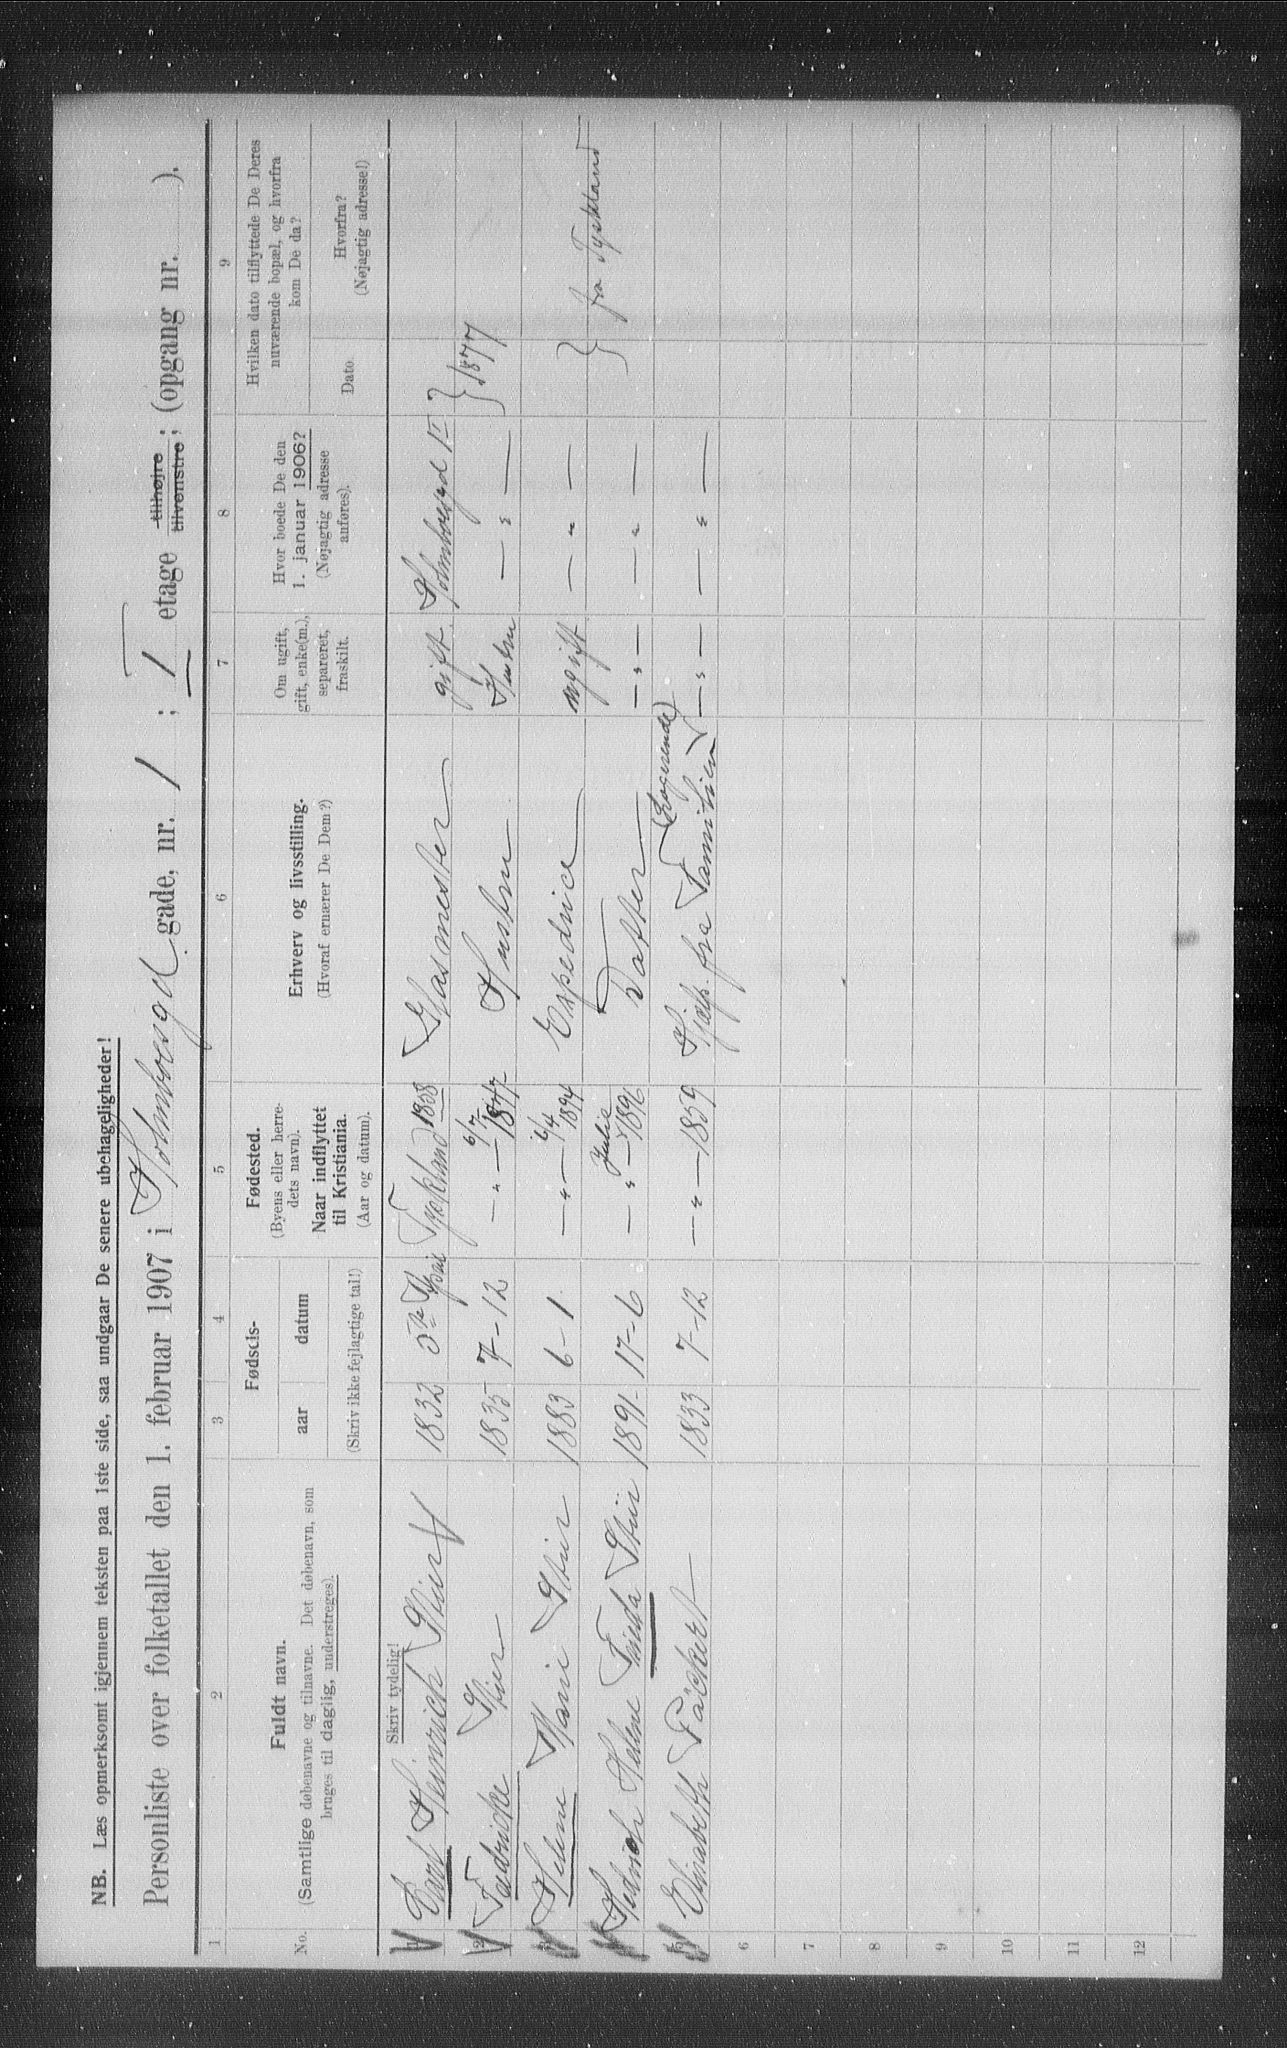 NB. Læs opmerksomt igjennem teksten paa 1ste side, saa undgaar De senere ubehageligheder!
Personliste over folketallet den 1. februar 1907 i Holmboesgd. gade, nr. 1 ; 1 etage tilhøjre tilvenstre; (opgang nr. ).
1 2 3 4 5 6 7 8 9
No.
Fuldt navn.
(Samtlige døbenavne og tilnavne. Det døbenavn, som
bruges til daglig, understreges).
Skriv tydelig!
Fødsels-
aar datum
(Skriv ikke fejlagtige tal!)
Fødested.
(Byens eller herre-
dets navn).
Naar indflyttet
til Kristiania.
(Aar og datum).
Erhverv og livsstilling.
(Hvoraf ernærer De Dem?)
Om ugift,
gift, enke(m.),
separeret,
fraskilt.
Hvor boede De den
1. januar 1906?
(Nøjagtig adresse
anføres).
Hvilken dato tilflyttede De Deres
nuværende bopæl, og hvorfra
kom De da?
Dato
Hvorfra?
(Nøjagtig adresse!)
1 Carl Heinrich Stür 1832 5te Tyskland 1858 Glasmester gift Holmboesgd 1 } 1877
2 Stür 1835 7-12 — " — 6/7 1877 Hustru Hustru — " —
3 Helene Marie Stür 1883 6-1 — " — 6/4 1894 Expedrice ugift — " — } fra Tyskland
4 Helene Frieda Stür 1891 17-6 — " — Julie 1896 Datter — " — — " —
5 Elisabeth Fäcket 1833 7-12 — " — 1859 Hjælp. fra Familien (Logerende) — " — — " —
6
7
8
9
10
11
12